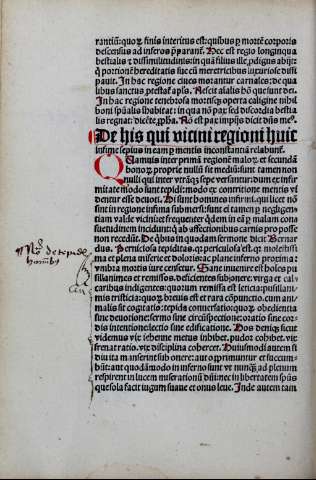 rantiũ: quoꝝ finis interitus est: quibus ꝑ mortẽ corporis
descensus ad inferos p̱paraṯ. Hec est regio longinqua
bestialis ⁊ dissimilitudinis: in quã filius ille ꝓdigus abijt:
⁊ portionẽ hereditatis sue cũ meretricibus luxuriose dissi
pauit. In hac regione ciues morantur carnales: de qua
libus sanctus prestaꝉ aps̃. Nescit alialis hõ que sunt dei.
In hac regione tenebrosa mortisqꝫ operta caligine nihil
boni spũalis ĩhabitat: in qua nõ pax sed discordia bestia
lis regnat: dicẽte ꝓpha. Nõ est pax impijs dicit dñs.
De his qui vicini regioni huic
infime sepius in eam ꝑ mentis inconstantiã relabunṯ.
QUamuis inter primã regionẽ maloꝝ et secundã
bonoꝝ proprie nullũ sit mediũ: sunt tamen non
nulli qui inter vtrãqꝫ sepe versantur: dum ex infir
mitate modo sunt tepidi: modo ex contritione mentis vi
dentur esse deuoti. Hi sunt homines infirmi. qui licet nõ
sint in regione infima submersi: sunt ei tamen ꝑ negligen
tiam valde vicini: ⁊ frequenter qdem in eã ꝑ malam cons
suetudinem incidunt: qꝫ ab affectionibus carnis pro posse
non recedũt. De qbus in quodam sermone dicit Bernar
dus. Perniciosa tepiditas. ꝙ periculosa est. qꝫ molestissi
ma et plena miserie et doloris: ac plane inferno proxima:
vmbra mortis iure cẽsetur. Sane inuenire est hoies pu
sillanimes et remissos. deficientes subonere: virga et cal
caribus indigentes: quorum remissa est leticia: pusillani
mis tristicia: quoꝝ breuis est et rara cõpunctio. cum ani-
malis sit cogitatio: tepida conuersatio: quoꝝ obedientia
sine deuotione: sermo sine circũspectione: oratio sine cor-
dis intentione: lectio sine edificatione. Hos deniqꝫ sicut
videmus vix iehenne metus inhibet. pudor cohibet. vix
frenat ratio. vix disciplina cohercet. Huiusmodi autem si
diu ita mãserint: sub onere: aut oꝓprimuntur et succum-
būt: aut quodãmodo in inferno sunt vt nunqꝫ ad plenum
respirent in lucem miserationũ dñi: nec in libertatem spũs
que sola facit iugum suaue et onus leue. Inde autem tam
Nõ de tepidis
hominibꝫ